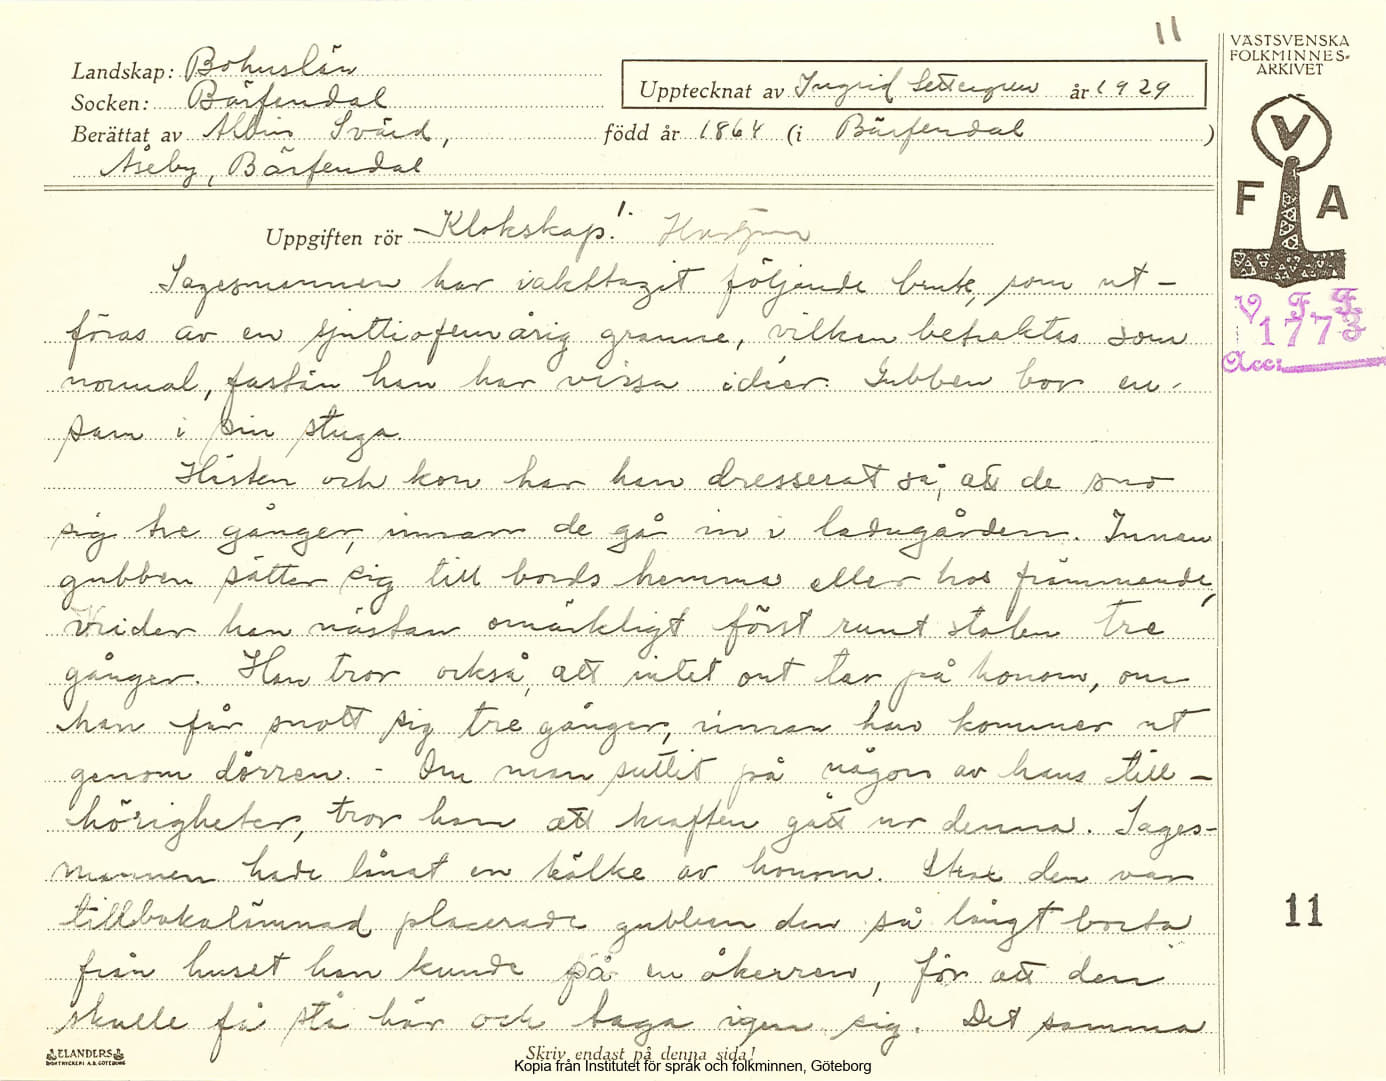 11
VÄSTSVENSKA
FOLKMINNES-
ARKIVET
Landskap: Bohuslän
Socken: Bärfendal
Upptecknat av Ingrid Settergren år 1929
Berättat av Albin Svärd, född år 1864 (i Bärfendal )
Åseby, Bärfendal
V
F A
Uppgiften rör Klokskap! 1.
Sagesmannen har iakttagit följande bruk, som ut-
föras av en sjuttiofemårig granne, vilken betraktas som
normal, fastän han har vissa idéer. Gubben bor en-
sam i sin stuga.
V F F
1773
Acc:
Hästen och kon har han dresserat så, att de sno
sig tre gånger, innan de gå in i ladugården. Innan
gubben sätter sig till bords hemma eller hos främmande,
vrider han nästan omärkligt först runt stolen tre
gånger. Han tror också, att intet ont tar på honom, om
han får snott sig tre gånger, innan han kommer ut
genom dörren. - Om man suttit på någon av hans till-
hörigheter, tror han att kraften gått ur denna. Sages-
mannen hade lånat en kälke av honom. Strax den var
tillbakalämnad placerade gubben den så långt borta
från huset han kunde på en åkerren, för att den
skulle få stå här och taga igen sig. Det samma
11
ELANDERS
BOKTRYCKERI A.B. GÖTEBORG
Skriv endast på denna sida!
Kopia från Institutet för språk och folkminnen, Göteborg